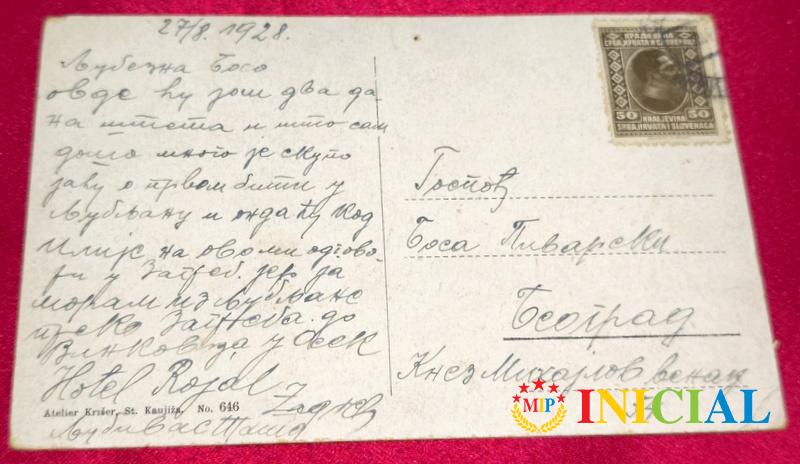 27/8 1928.
Љубезна Босо
овде ћу још два да
на штета и што сам
дошо много је скупо
јаћу о првом бити у
Љубљану и онда ћу код
Илије на ово ми одгово
ри у Загреб. јер ја
морам из Љубљане
преко Загреба до
Винковаца, у Осек
Hotel Rojal Zagreb
Љуби вас
КРАЉЕВИНА
СРБА, ХРВАТА И СЛОВЕНАЦА
50 50
KRALJEVINA
SRBA, HRVATA I SLOVENACA
Госпођ
Боса Пиварски
Београд
Кнез Михајлов венац
Atelier Krišer, St. Kanjiža, No. 646
MIP INICIAL